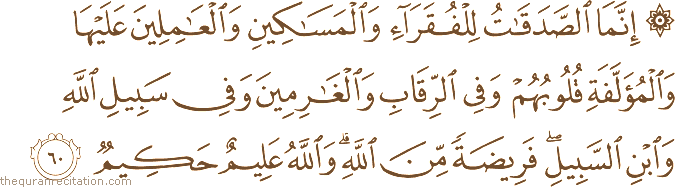 ۞ إِنَّمَا ٱلصَّدَقَـٰتُ لِلْفُقَرَآءِ وَٱلْمَسَـٰكِينِ وَٱلْعَـٰمِلِينَ عَلَيْهَا
وَٱلْمُؤَلَّفَةِ قُلُوبُهُمْ وَفِى ٱلرِّقَابِ وَٱلْغَـٰرِمِينَ وَفِى سَبِيلِ ٱللَّهِ
وَٱبْنِ ٱلسَّبِيلِ ۖ فَرِيضَةً مِّنَ ٱللَّهِ ۗ وَٱللَّهُ عَلِيمٌ حَكِيمٌ ٦٠
thequranrecitation.com